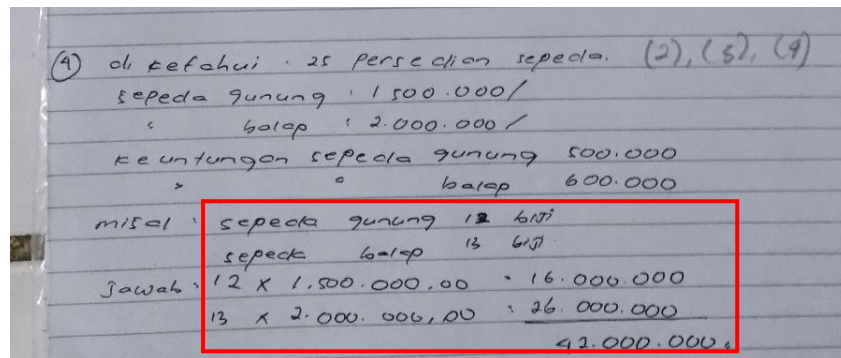 (4) di ketahui . 25 persedian sepeda. (2), (3), (4)
sepeda gunung : 1 500.000/
" balap : 2.000.000/
keuntungan sepeda gunung 500.000
" " balap 600.000
misal : sepeda gunung 12 biji
sepeda balap 13 biji
Jawab : 12 x 1.500.000,00 = 16.000.000
13 x 2.000.000,00 : 26.000.000
42.000.000